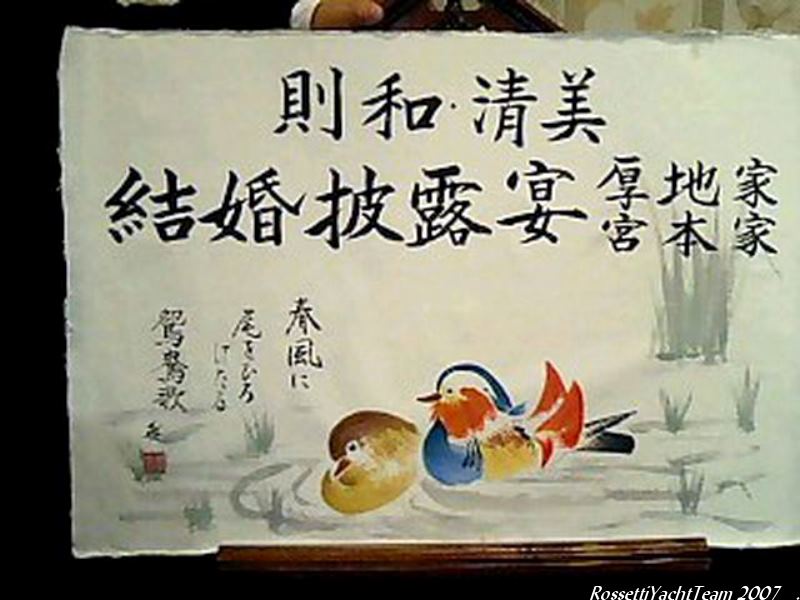 則和・清美
結婚披露宴
厚地家
宮本家
春風に
尾をひろ
げたる
鴛鴦歌
RossettiYachtTeam 2007